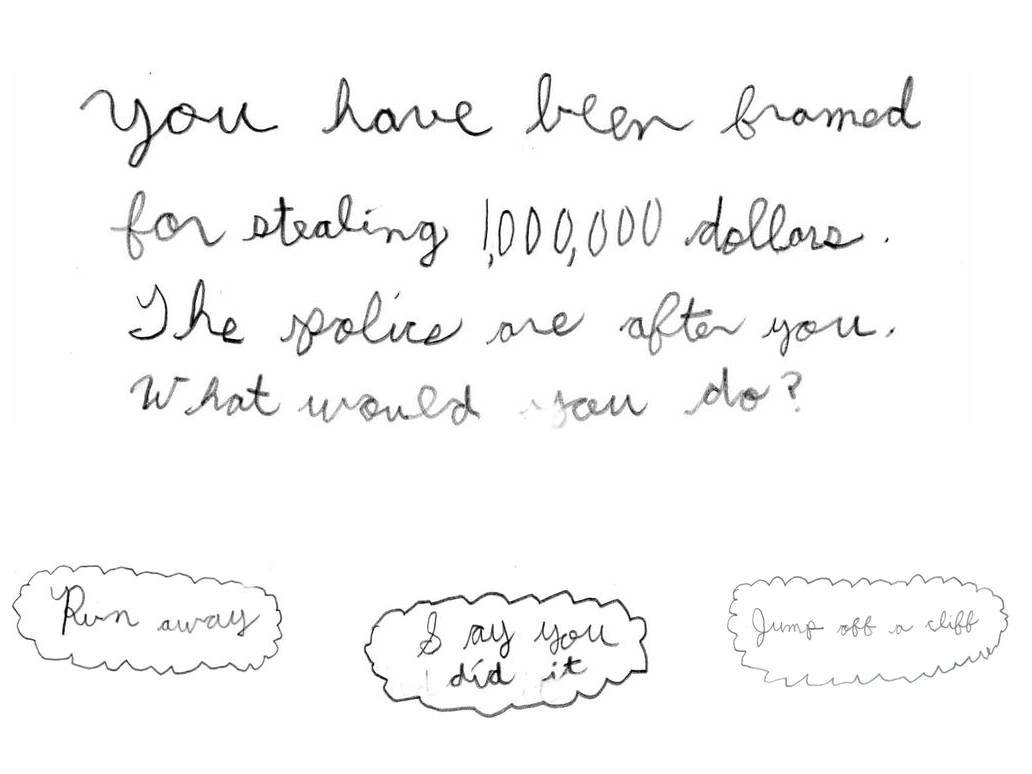 You have been framed
for stealing 1,000,000 dollars.
The police are after you.
What would you do?
Run away
Say you
did it
Jump off a cliff